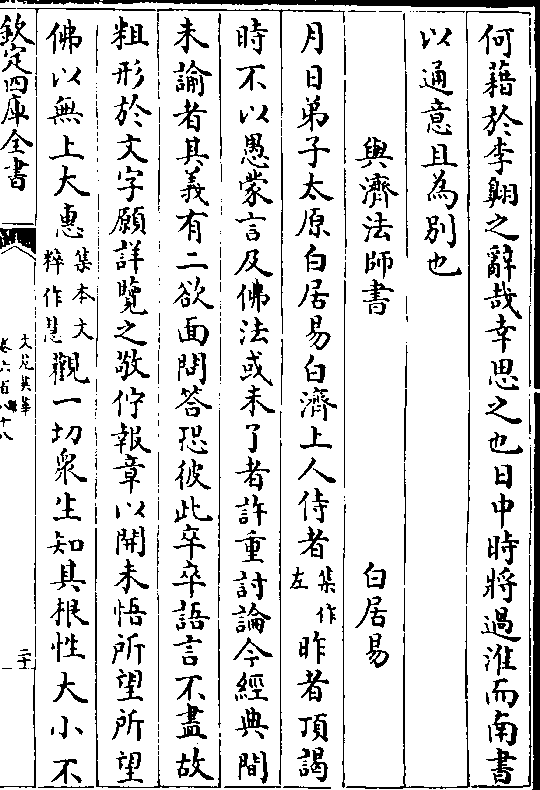 何藉於李翺之辭哉幸思之也日中時將過淮而南書
以通意且為別也
與濟法師書 白居易
月日弟子太原白居易白濟上人侍者集作左昨者頂謁
時不以愚蒙言及佛法或未了者許重討論今經典間
未諭者其義有二欲面問答恐彼此卒卒語言不盡故
粗形於文字願詳覽之敬佇報章以開未悟所望所望
佛以無上大惠集本文粹作慧觀一切衆生知其根性大小不
欽定四庫全書
文苑英華
卷六百八十八
二十